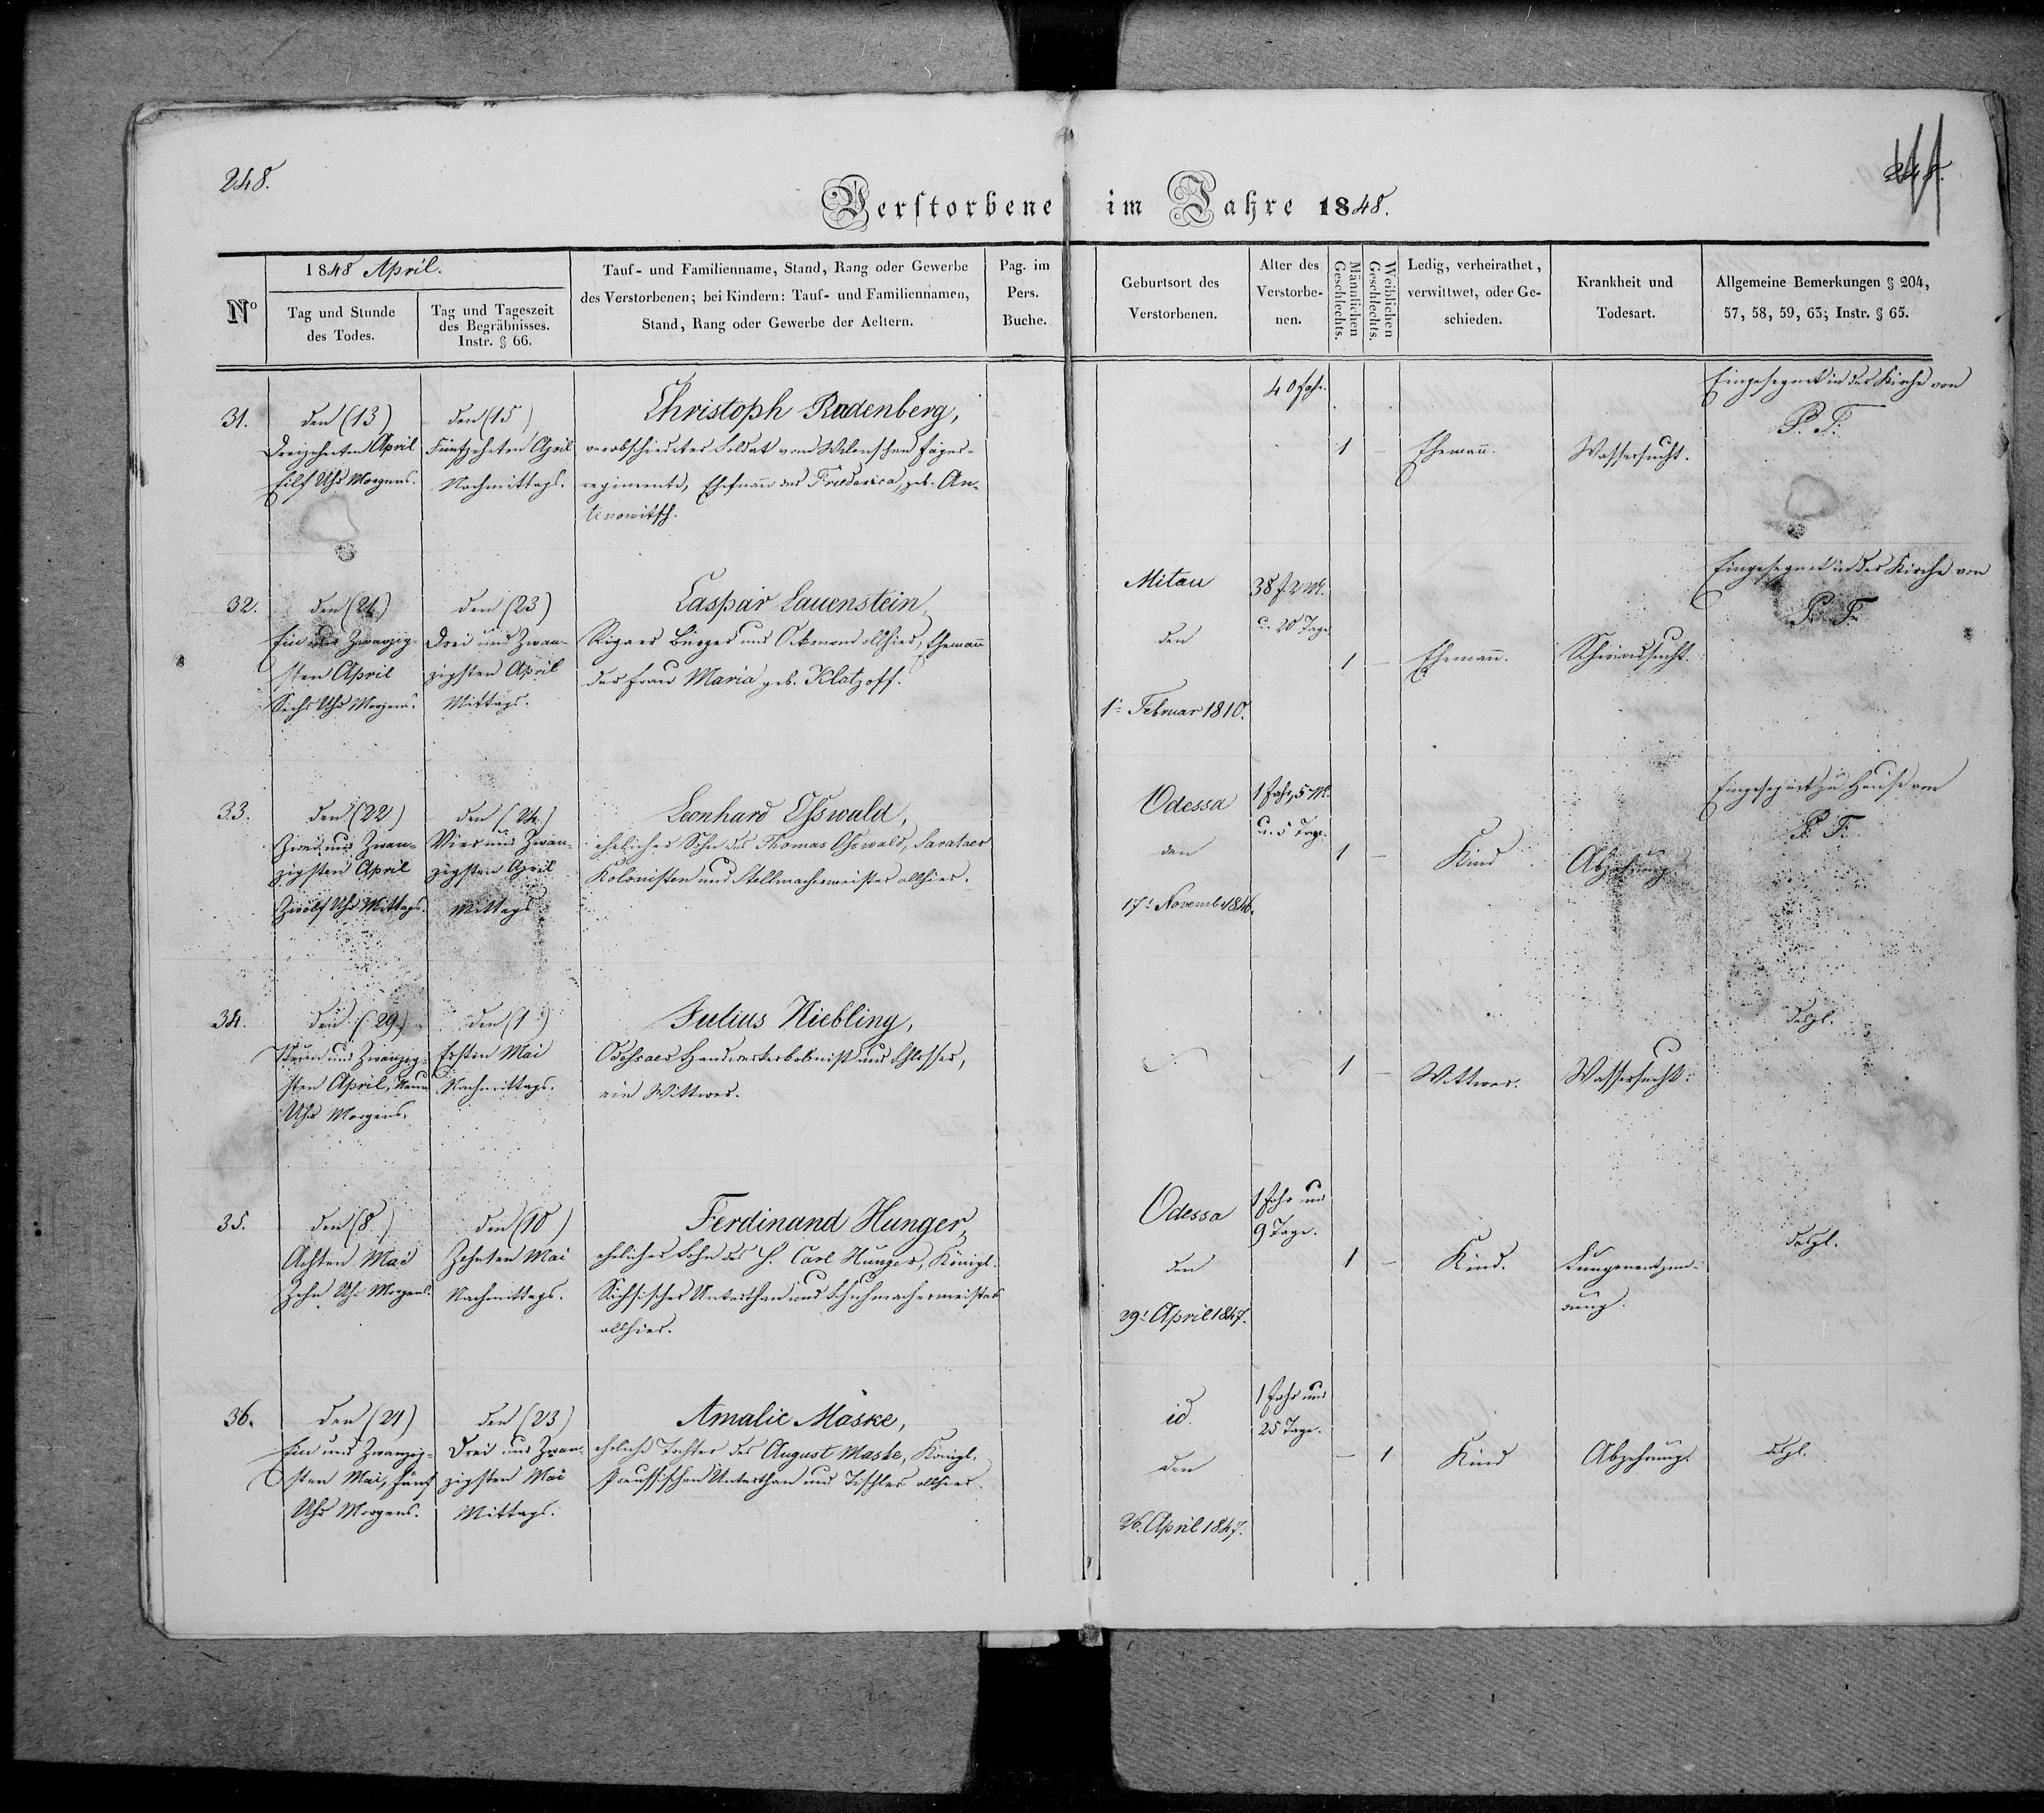 248.
248.
Verstorbene im Jahre 1848.
Nº
1848 April.
Tag und Stunde
des Todes.
Tag und Tageszeit
des Begräbnisses.
Instr. § 66.
Tauf- und Familienname, Stand, Rang oder Gewerbe
des Verstorbenen; bei Kindern: Tauf- und Familiennamen,
Stand, Rang oder Gewerbe der Aeltern.
Pag. im
Pers.
Buche.
Geburtsort des
Verstorbenen.
Alter des
Verstorbe-
nen.
Männlichen
Geschlechts.
Weiblichen
Geschlechts.
Ledig, verheirathet,
verwittwet, oder Ge-
schieden.
Krankheit und
Todesart.
Allgemeine Bemerkungen § 204,
57, 58, 59, 63; Instr. § 65.
31.
den (13)
Dreizehnten April
Eilf Uhr Morgens.
den (15)
Fünfzehnten April
Nachmittags.
Christoph Radenberg,
verabschiedeter Soldat vom Wilenschen Jäger-
regimente, Ehemann der Friederica, geb. An-
tinowitsch.
40 Jahr.
1 –
Ehemann.
Wassersucht.
Eingesegnet in der Kirche von
P. F.
32.
den (21)
Ein und Zwanzig-
sten April
Sechs Uhr Morgens.
den (23)
Drei und Zwan-
zigsten April
Mittags.
Caspar Lauenstein,
Rigaer Bürger und allhier, Ehemann
der Frau Maria geb. Klatzoff.
Mitau
den
1ᵗ Februar 1810.
38 J. 2 M.
u. 20 Tage
1 –
Ehemann.
Schwindsucht.
Eingesegnet in der Kirche von
P. F.
33.
den (22)
Zwei und Zwan-
zigsten April
Zwölf Uhr Mittags.
den (24)
Vier und Zwan-
zigsten April
Mittags
Leonhard Osswald,
ehelicher Sohn des Thomas Osswald, Sarataer
Kolonisten und Stellmachermeister allhier.
Odessa
den
17ᵗ Novemb. 1846.
1 Jahr, 5 M.
u. 5 Tage.
1 –
Kind
Abzehrung
Eingesegnet zu Hause von
P. F.
34.
den (29)
Neun und Zwanzig-
sten April, Neun
Uhr Morgens.
den (1)
Ersten Mai
Nachmittags.
Julius Kiebling,
Odessaer und Schlosser,
ein Wittwer.
1 –
Wittwer.
Wassersucht.
desgl.
35.
den (8)
Achten Mai
Zehn Uhr Morgens.
den (10)
Zehnten Mai
Nachmittags.
Ferdinand Hunger,
ehelicher Sohn des H. Carl Hunger, Königl.
Sächsischer Unterthan und Schuhmachermeister
allhier.
Odessa
den
29ᵗ April 1847.
1 Jahr und
9 Tage.
1 –
Kind.
Lungenentzün-
dung.
desgl.
36.
den (21)
Ein und Zwanzig-
sten Mai, Fünf
Uhr Morgens.
den (23)
Drei und Zwan-
zigsten Mai
Mittags.
Amalie Maske,
eheliche Tochter des August Maske, Königl.
Preussischen Unterthan und Tischler allhier.
id.
den
26. April 1847.
1 Jahr und
25 Tage.
– 1
Kind
Abzehrung.
desgl.